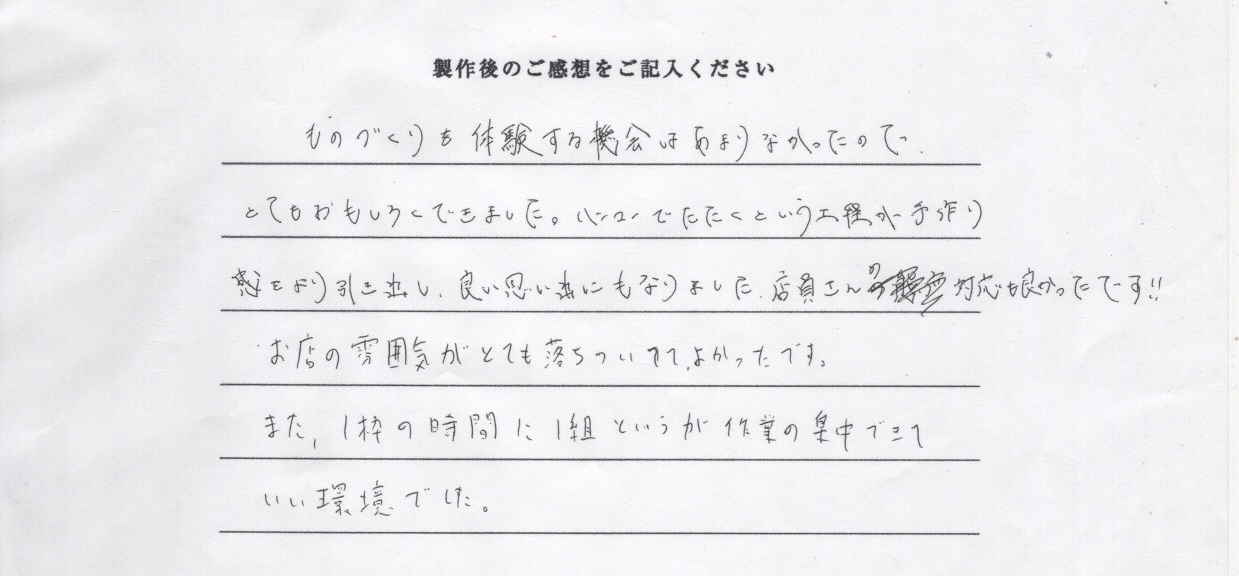 製作後のご感想をご記入ください
ものづくりを体験する機会はあまりなかったので、
とてもおもしろくできました。ハンコンでたたくという工程が手作り
感をより引き出し、良い思い出にもなりました。店員さんの対応も良かったです!!
お店の雰囲気がとても落ちついてて、よかったです。
また、1枠の時間に1組というが作業の集中できて
いい環境でした。